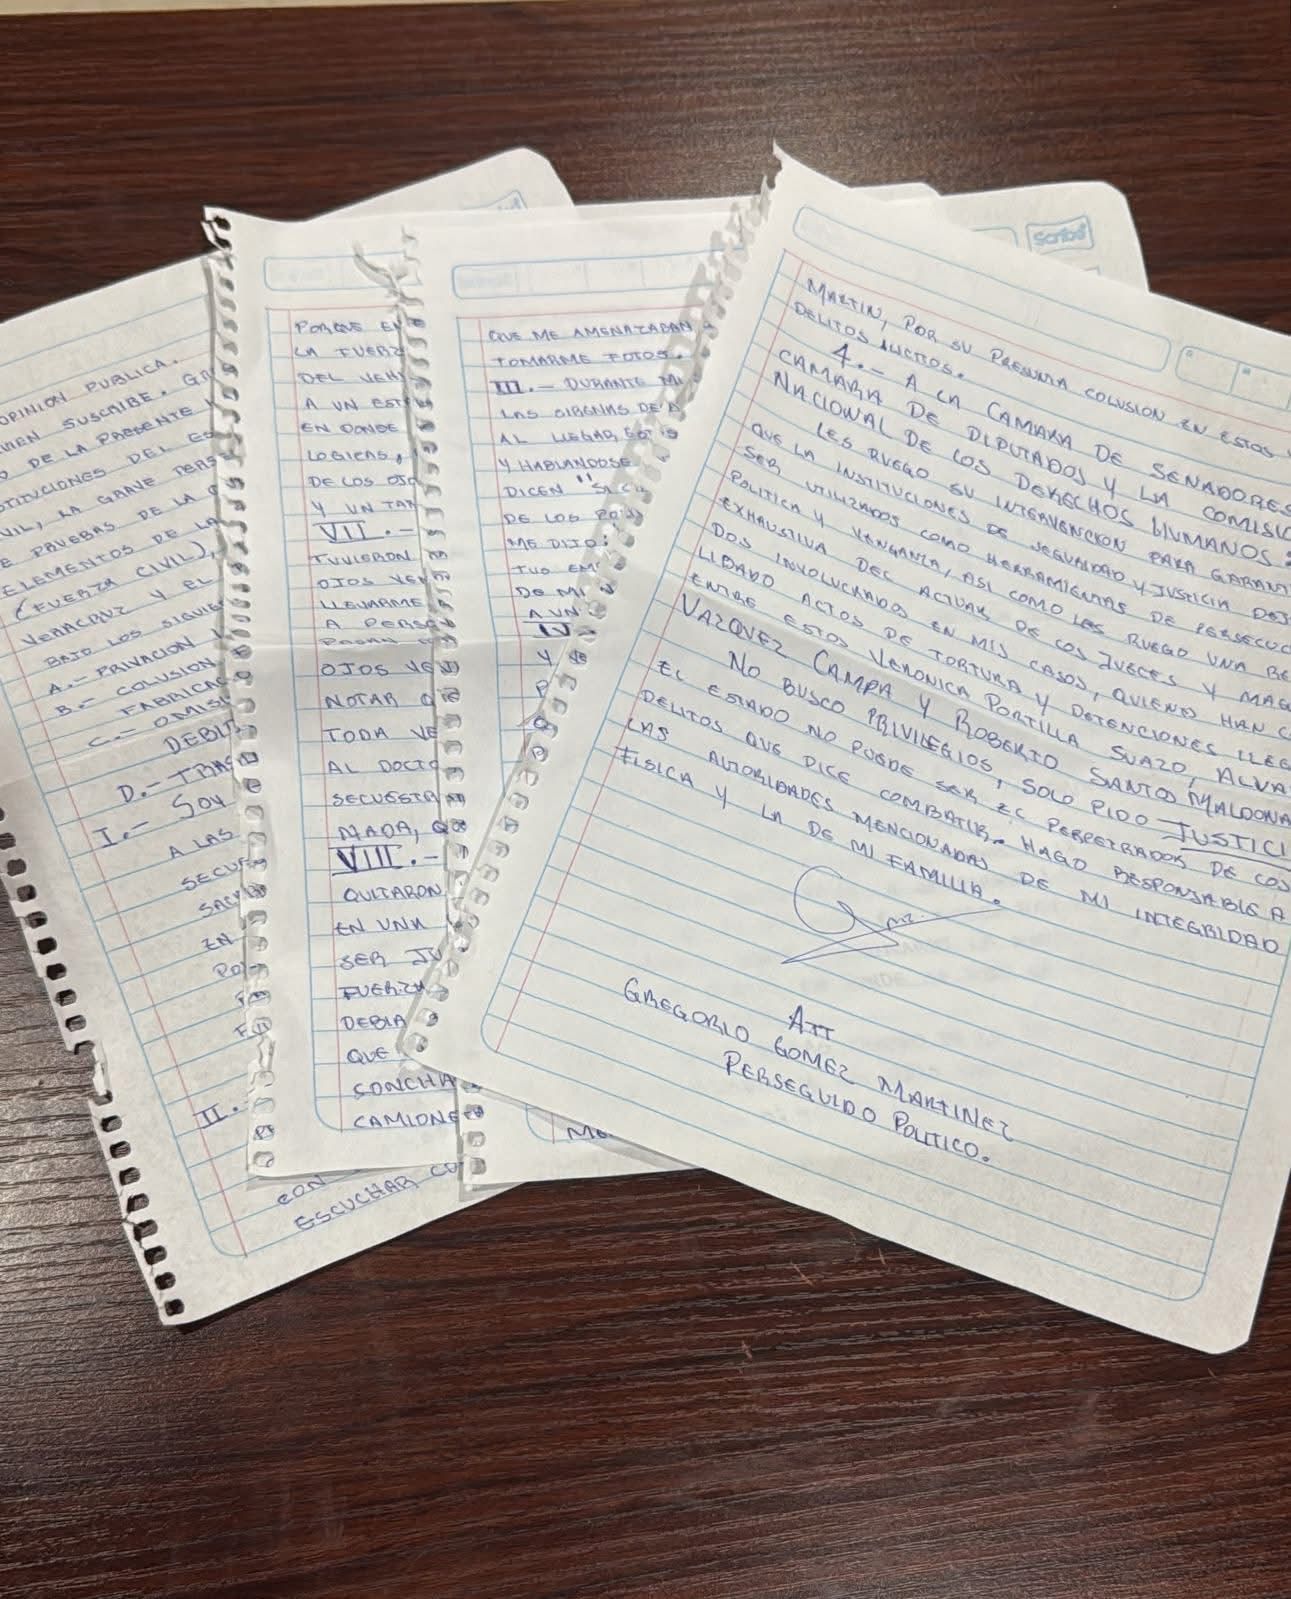 OPINION PUBLICA.
SUSCRIBE. GR
DE LA PRESENTE
TITUCIONES DEL ES
VIL, LA GRAVE PERS
E PRUEBAS DE LA
ELEMENTOS DE LA
(FUERZA CIVIL),
VERACRUZ Y EL
BAJO LOS SIGUIE
A.- PRIVACION
B.- COLUSION
FABRICAC
C.- OMISI
DEBID
D.- TRAS
I.- SOY
A LAS
SECUE
EN
POR
II.
CON
ESCUCHAR CO
PORQUE EN
LA FUERZ
DEL VEHI
A UN EST
EN DONDE
LOGICAS,
DE LOS OJO
Y UN TAR
VII.-
TUVIERON
OJOS VEN
LLEVARME
A PERSO
OJOS VE
NOTAR Q
TODA VE
AL DOCTO
SECUESTRA
NADA, QUE
VIII.-
QUITARON
EN UNA
SER JU
FUERZA
DEBIA
QUE
SONCHA
CAMIONE
QUE ME AMENAZABAN
TOMARME FOTOS.
III.- DURANTE MI
LAS DIRENAS DE A
AL LLEGAR ESTOS
Y HABLANDOSE
DICEN "
DE LOS
ME DIJO:
TUO EM
DE MI
A UN
IV
Y
P
ME
Scribe
MARTIN, POR SU PRESUNTA COLUSION EN ESTOS
DELITOS ILICITOS.
4.- A LA CAMARA DE SENADORES
CAMARA DE DIPUTADOS Y LA COMISIO
NACIONAL DE LOS DERECHOS HUMANOS:
LES RUEGO SU INTERVENCION PARA GARANTI
QUE LA INSTITUCIONES DE SEGURIDAD Y JUSTICIA DEJ
SER UTILIZADOS COMO HERRAMIENTAS DE PERSECUC
POLITICA Y VENGANZA, ASI COMO LES RUEGO UNA RE
EXHAUSTIVA DEL ACTUAR DE LOS JUECES Y MAG
DOS INVOLUCRADOS EN MIS CASOS, QUIENES HAN C
LIDADO ACTOS DE TORTURA Y DETENCIONES ILEG
ENTRE ESTOS VERONICA PORTILLA SUAZO, ALVA
VAZQUEZ CAMPA Y ROBERTO SANTOS MALDONA
NO BUSCO PRIVILEGIOS, SOLO PIDO JUSTICI
EL ESTADO NO PUEDE SER EL PERPETRADOR DE LOS
DELITOS QUE DICE COMBATIR. HAGO RESPONSABLE A
LAS AUTORIDADES MENCIONADAS DE MI INTEGRIDAD
FISICA Y LA DE MI FAMILIA.
ATT
GREGORIO GOMEZ MARTINEZ
PERSEGUIDO POLITICO.